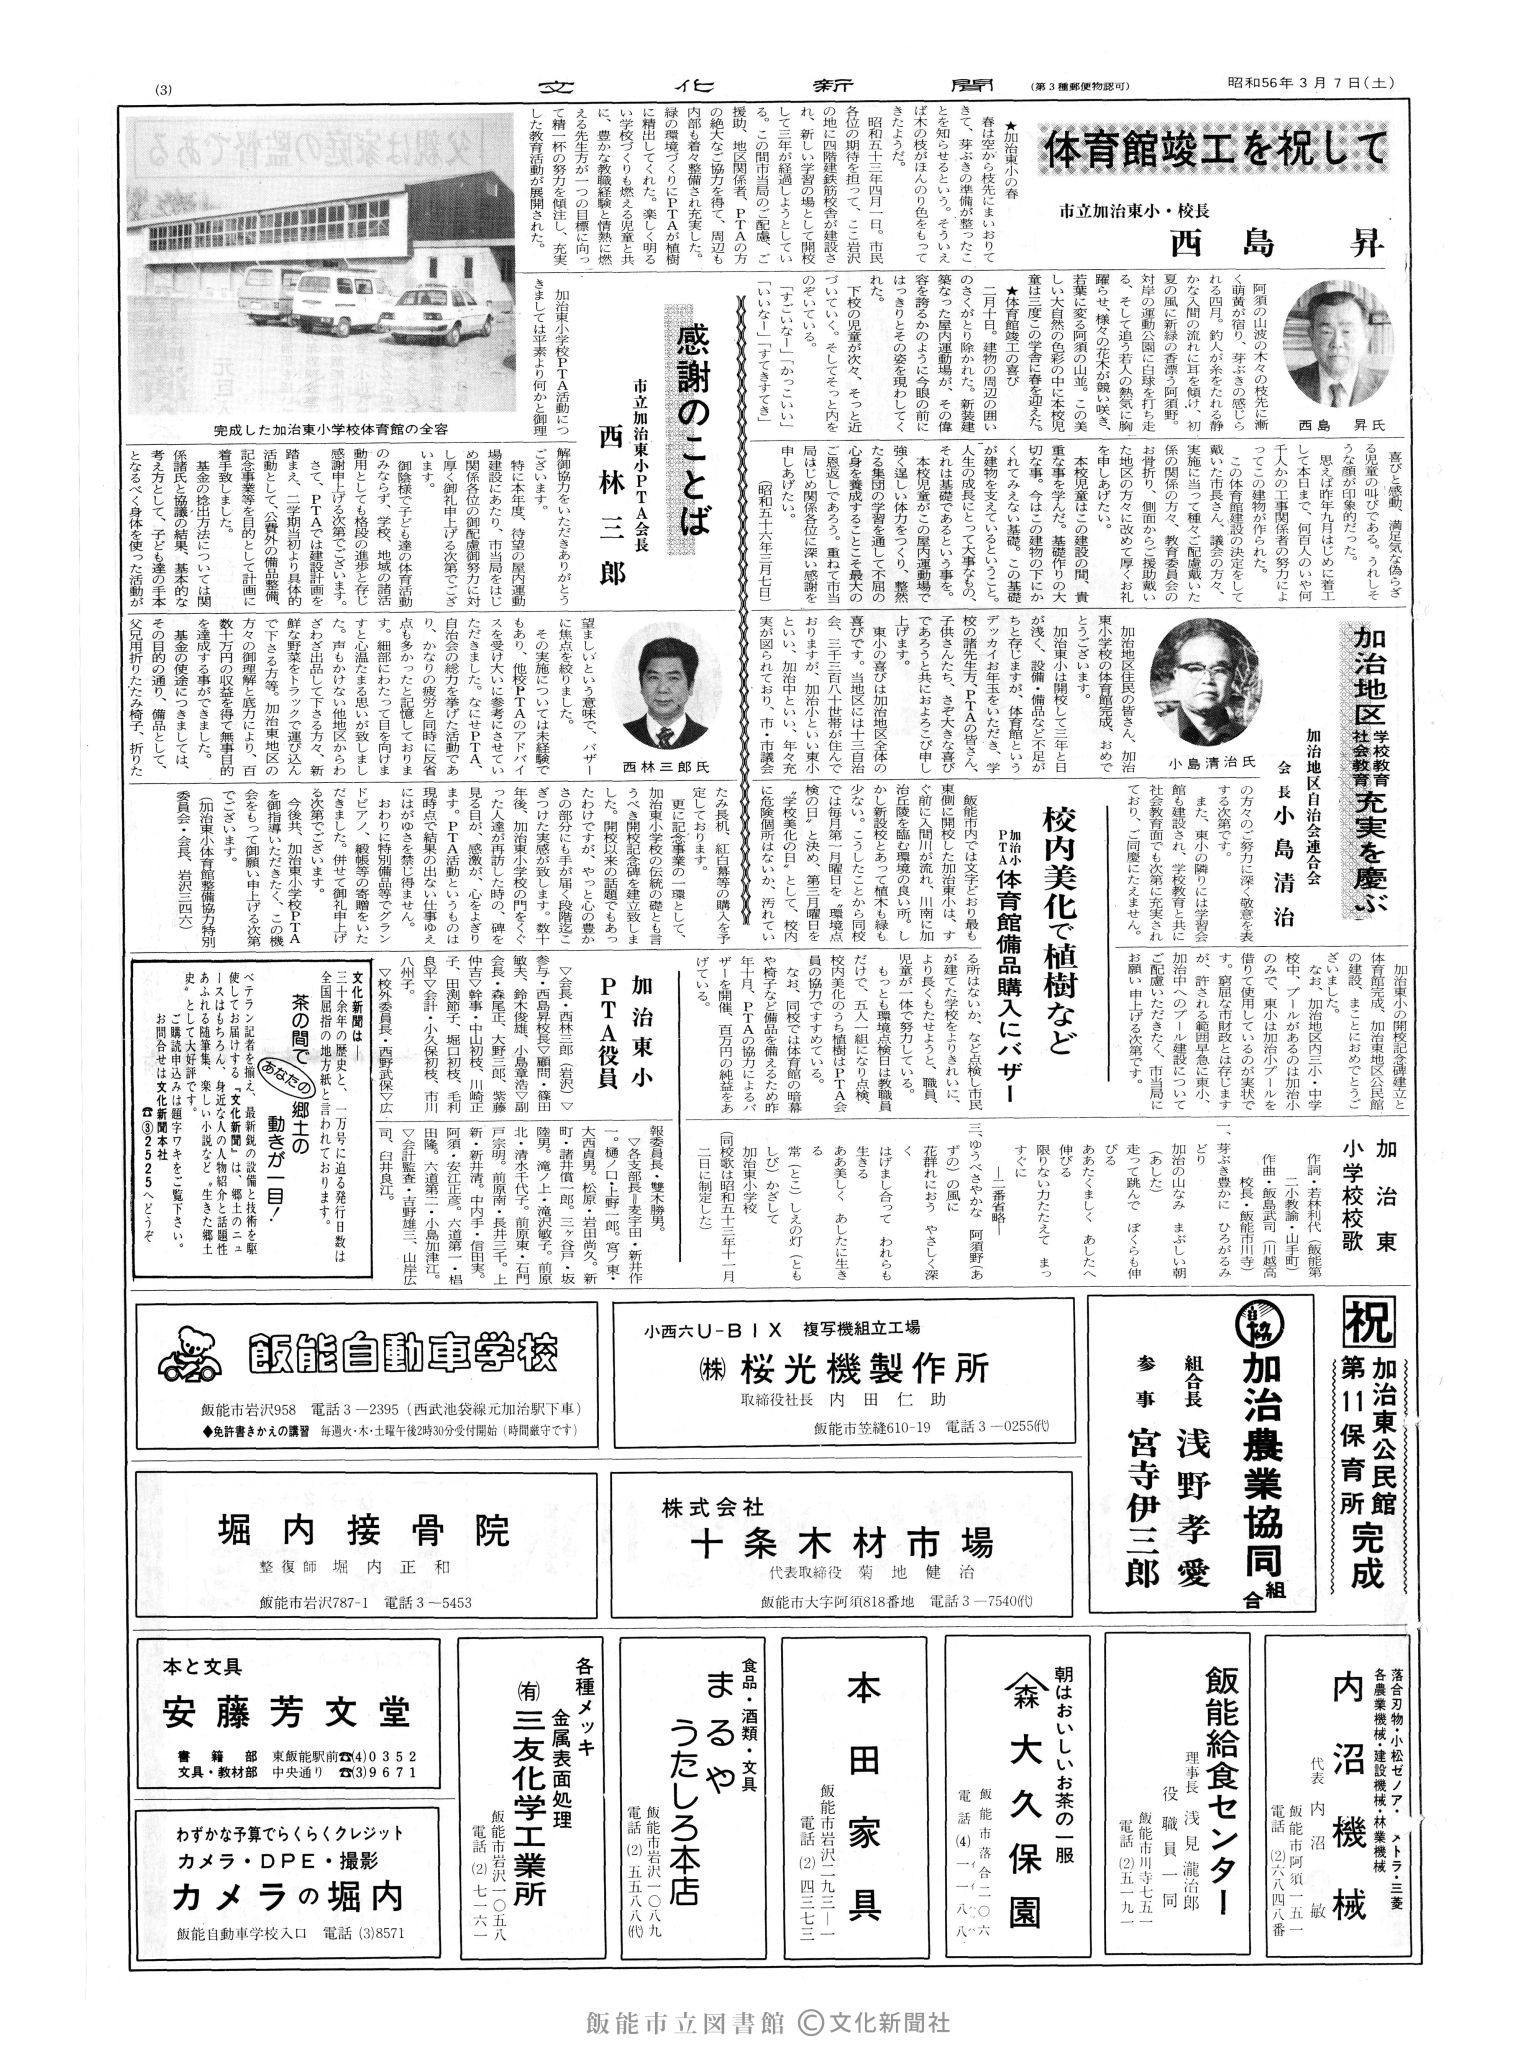 (3)
文化新聞
(第3種郵便物認可)
昭和56年3月7日(土)
体育館竣工を祝して
市立加治東小・校長
西島 昇
★加治東小の春
春は空から枝先にまいおりて
きて、芽ぶきの準備が整ったこ
とを知らせるという。そういえ
ば木の枝がほんのり色をもって
きたようだ。
昭和五十三年四月一日。市民
各位の期待を担って、ここ岩沢
の地に四階建鉄筋校舎が建設さ
れ、新しい学習の場として開校
して三年が経過しようとしてい
る。この間市当局のご配慮、ご
援助、地区関係者、PTAの方
の絶大なご協力を得て、周辺も
内部も着々整備され充実した。
緑の環境づくりにPTAが植樹
に精出してくれた。楽しく明る
い学校づくりも燃える児童と共
に、豊かな教職経験と情熱に燃
える先生方が一つの目標に向っ
て精一杯の努力を傾注し、充実
した教育活動が展開された。
西島 昇氏
阿須の山波の木々の枝先に漸
く萌黄が宿り、芽ぶきの感じら
れる四月。釣人が糸をたれる静
かな入間の流れに耳を傾け、初
夏の風に新緑の香漂う阿須野。
対岸の運動公園に白球を打ち走
る、そして追う若人の熱気に胸
躍らせ、様々の花木が競い咲き、
若葉に変る阿須の山並。この美
しい大自然の色彩の中に本校児
童は三度この学舎に春を迎えた。
★体育館竣工の喜び
二月十日。建物の周辺の囲い
のさくがとり除かれた。新装建
築なった屋内運動場が、その偉
容を誇るかのように今眼の前に
はっきりとその姿を現わしてく
れた。
下校の児童が次々、そっと近
づいていく。そしてそっと内を
のぞいている。
「すごいなー」「かっこいい」
「いいなー」「すてきすてき」
喜びと感動、満足気な偽らざ
る児童の叫びである。うれしそ
うな顔が印象的だった。
思えば昨年九月はじめに着工
して本日まで、何百人のいや何
千人かの工事関係者の努力によ
ってこの建物が作られた。
この体育館建設の決定をして
戴いた市長さん、議会の方々、
実施に当って種々ご配慮戴いた
係の関係の方々、教育委員会の
お骨折り、側面からご援助戴い
た地区の方々に改めて厚くお礼
を申しあげたい。
本校児童はこの建設の間、貴
重な事を学んだ。基礎作りの大
切な事。今はこの建物の下にか
くれてみえない基礎。この基礎
が建物を支えているということ。
人生の成長にとって大事なもの、
それは基礎であるという事を。
本校児童がこの屋内運動場で
強く逞しい体力をつくり、整然
たる集団の学習を通して不屈の
心身を養成することこそ最大の
ご恩返しであろう。重ねて市当
局はじめ関係各位に深い感謝を
申しあげたい。
(昭和五十六年三月七日)
完成した加治東小学校体育館の全容
感謝のことば
市立加治東小PTA会長
西林三郎
加治東小学校PTA活動につ
きましては平素より何かと御理
解御協力をいただきありがとう
ございます。
特に本年度、待望の屋内運動
場建設にあたり、市当局をはじ
め関係各位の御配慮御努力に対
し厚く御礼申し上げる次第でござ
います。
御陰様で子ども達の体育活動
のみならず、学校、地域の諸活
動用としても格段の進歩と存じ
感謝申上げる次第でございます。
さて、PTAでは建設計画を
踏まえ、二学期当初より具体的
活動として、公費外の備品整備、
記念事業等を目的として計画に
着手致しました。
基金の捻出方法については関
係諸氏と協議の結果、基本的な
考え方として、子ども達の手本
となるべく身体を使った活動が
西林三郎氏
望ましいという意味で、バザー
に焦点を絞りました。
その実施については未経験で
もあり、他校PTAのアドバイ
スを受け大いに参考にさせてい
ただきました。なにせPTA、
自治会の総力を挙げた活動であ
り、かなりの疲労と同時に反省
点も多かったと記憶しておりま
す。細部にわたって目を向けま
すと心温たまる思いが致しまし
た。声もかけない他地区からわ
ざわざ出品して下さる方々、新
鮮な野菜をトラックで運び込ん
で下さる方等。加治東地区の
方々の御理解と底力により、百
数十万円の収益を得て無事目的
を達成する事ができました。
基金の使途につきましては、
その目的の通り、備品として、
父兄用折りたたみ椅子、折りた
たみ長机、紅白幕等の購入を予
定しております。
更に記念事業の一環として、
加治東小学校の伝統の礎とも言
うべき開校記念碑を建立致しま
した。開校以来の話題でもあっ
たわけですが、やっと心の豊か
さの部分にも手が届く段階迄こ
ぎつけた実感が致します。数十
年後、加治東小学校の門をくぐ
った人達が再訪した時の、碑を
見る目が、感激が、心をよぎり
ます。PTA活動というものは
現時点で結果の出ない仕事ゆえ
にはがゆさを禁じ得ません。
おわりに特別備品等でグラン
ドピアノ、緞帳等の寄贈をいた
だきました。併せて御礼申上げ
る次第でございます。
今後共、加治東小学校PTA
を御指導いただきたく、この機
会をもって御願い申上げる次第
でございます。
(加治東小体育館整備協力特別
委員会・会長、岩沢三四六)
加治地区学校教育社会教育充実を慶ぶ
加治地区自治会連合会
会長 小島清治
小島清治氏
加治地区住民の皆さん、加治
東小学校の体育館完成、おめで
とうございます。
加治東小は開校して三年と日
が浅く、設備・備品など不足が
ちと存じますが、体育館という
デッカイお年玉をいただき、学
校の諸先生方、PTAの皆さん、
子供さんたち、さぞ大きな喜び
であろうと共におよろこび申し
上げます。
東小の喜びは加治地区全体の
喜びです。当地区には十三自治
会、三千三百八十世帯が住んで
おりますが、加治小といい東小
といい、加治中といい、年々充
実が図られており、市・市議会
の方々のご努力に深く敬意を表
する次第です。
また、東小の隣りには学習会
館も建設され、学校教育と共に
社会教育面でも次第に充実され
ており、ご同慶にたえません。
加治東小の開校記念碑建立と
体育館完成、加治東地区公民館
の建設、まことにおめでとうご
ざいました。
なお、加治地区内三小・中学
校中、プールがあるのは加治小
のみで、東小は加治小プールを
借りて使用しているのが実状で
す。窮屈な市財政とは存じます
が、許される範囲早急に東小、
加治中へのプール建設について
ご配慮いただきたく、市当局に
お願い申上げる次第です。
校内美化で植樹など
加治小PTA 体育館備品購入にバザー
飯能市内では文字どおり最も
東側に開校した加治東小は、す
ぐ前に入間川が流れ、川南に加
治丘陵を臨む環境の良い所。し
かし新設校とあって植木も緑も
少ない。こうしたことから同校
では毎月第一月曜日を〝環境点
検の日〟と決め、第三月曜日を
〝学校美化の日〟として、校内
に危険個所はないか、汚れてい
る所はないか、など点検し市民
が建てた学校をよりきれいに、
より長くもたせようと、職員、
児童が一体で努力している。
もっとも環境点検日は教職員
だけで、五人一組になり点検、
校内美化のうち植樹はPTA会
員の協力ですすめている。
なお、同校では体育館の暗幕
や椅子など備品を備えるため昨
年十月、PTAの協力によるバ
ザーを開催、百万円の純益をあ
げている。
加治東小
PTA役員
▽会長・西林三郎(岩沢)▽
参与・西島昇校長▽顧問・篠田
敏夫、鈴木俊雄、小島章浩▽副
会長・森尾正、大野二郎、紫藤
仲吉▽幹事・中山初枝、川崎正
子、田渕節子、堀口初枝、毛利
良平▽会計・小久保初枝、市川
八州子。
▽校外委員長・西野武保▽広
報委員長・雙木勝男。
▽各支部長=麦宇田・新井作
一。樋ノ口・上野一郎。宮ノ東・
大西貞男。松原・岩田尚久。新
町・諸井償一郎。三ヶ谷戸・坂
陸男。滝ノ上・滝沢敏子。前原
北・清水千代子。前原東・石門
戸宗明。前原南・長井三千。上
新・新井清。中内手・信田実。
阿須・安江正彦。六道第一・椙
田隆。六道第二・小島加津江。
▽会計監査・吉野雄三、山岸広
司、臼井良江。
加治東
小学校校歌
作詞・若林利代(飯能第
二小教諭・山手町)
作曲・飯島武司(川越高
校長・飯能市川寺)
一、芽ぶき豊かに ひろがるみ
どり
加治の山なみ まぶしい朝
(あした)
走って跳んで ぼくらも伸
びる
ああたくましく あしたへ
伸びる
限りない力たたえて まっ
すぐに
―二番省略―
三、ゆうべさやかな 阿須野(あ
ずの)の風に
花群れにおう やさしく深
く
はげまし合って われらも
生きる
ああ美しく あしたに生き
る
常(とこ)しえの灯(とも
しび)かざして
加治東小学校
(同校歌は昭和五十三年十一月
二日に制定した)
文化新聞は―
三十余年の歴史と、一万号に迫る発行日数は
全国屈指の地方紙と言われております。
茶の間で あなたの 郷土の
動きが一目!
ベテラン記者を揃え、最新鋭の設備と技術を駆
使してお届けする『文化新聞』は、郷土のニュ
ースはもちろん、身近な人の紹介と話題性
あふれる随筆集、楽しい小説など〝生きた郷土
史〟として大好評です。
ご購読申込みは題字ワキをご覧下さい。
お問合せは文化新聞本社
☎③2525へどうぞ
祝
加治東公民館
第11保育所
完成
加治農業協同組合
組合長 浅野孝愛
参事 宮寺伊三郎
小西六U-BIX 複写機組立工場
㈱桜光機製作所
取締役社長 内田仁助
飯能市笠縫610-19 電話3―0255(代)
飯能自動車学校
飯能市岩沢958 電話3―2395(西武池袋線元加治駅下車)
◆免許書きかえの講習 毎週火・木・土曜午後2時30分受付開始(時間厳守です)
株式会社
十条木材市場
代表取締役 菊地健治
飯能市大字阿須818番地 電話3―7540(代)
堀内接骨院
整復師 堀内正和
飯能市岩沢787-1 電話3―5453
落合刃物・小松ゼノア・メトラ・三菱
各農業機械・建設機械・林業機械
内沼機械
代表 内沼 敏
飯能市阿須一五一
電話(2)六八四八番
飯能給食センター
理事長 浅見瀧治郎
役職員一同
飯能市川寺七五一
電話(2)五一九一
朝はおいしいお茶の一服
森 大久保園
飯能市落合二〇六
本田家具
飯能市岩沢二九三―一
電話(2)四三七三
食品・酒類・文具
まるや
うたしろ本店
飯能市岩沢一〇八九
電話(2)五五八八(代)
各種メッキ
金属表面処理
㈲三友化学工業所
飯能市岩沢一〇五八
電話(2)七一六一
本と文具
安藤芳文堂
書籍部 東飯能駅前☎(4)0352
文具・教材部 中央通り ☎(3)9671
わずかな予算でらくらくクレジット
カメラ・DPE・撮影
カメラの堀内
飯能自動車学校入口 電話(3)8571
飯能市立図書館 ©文化新聞社